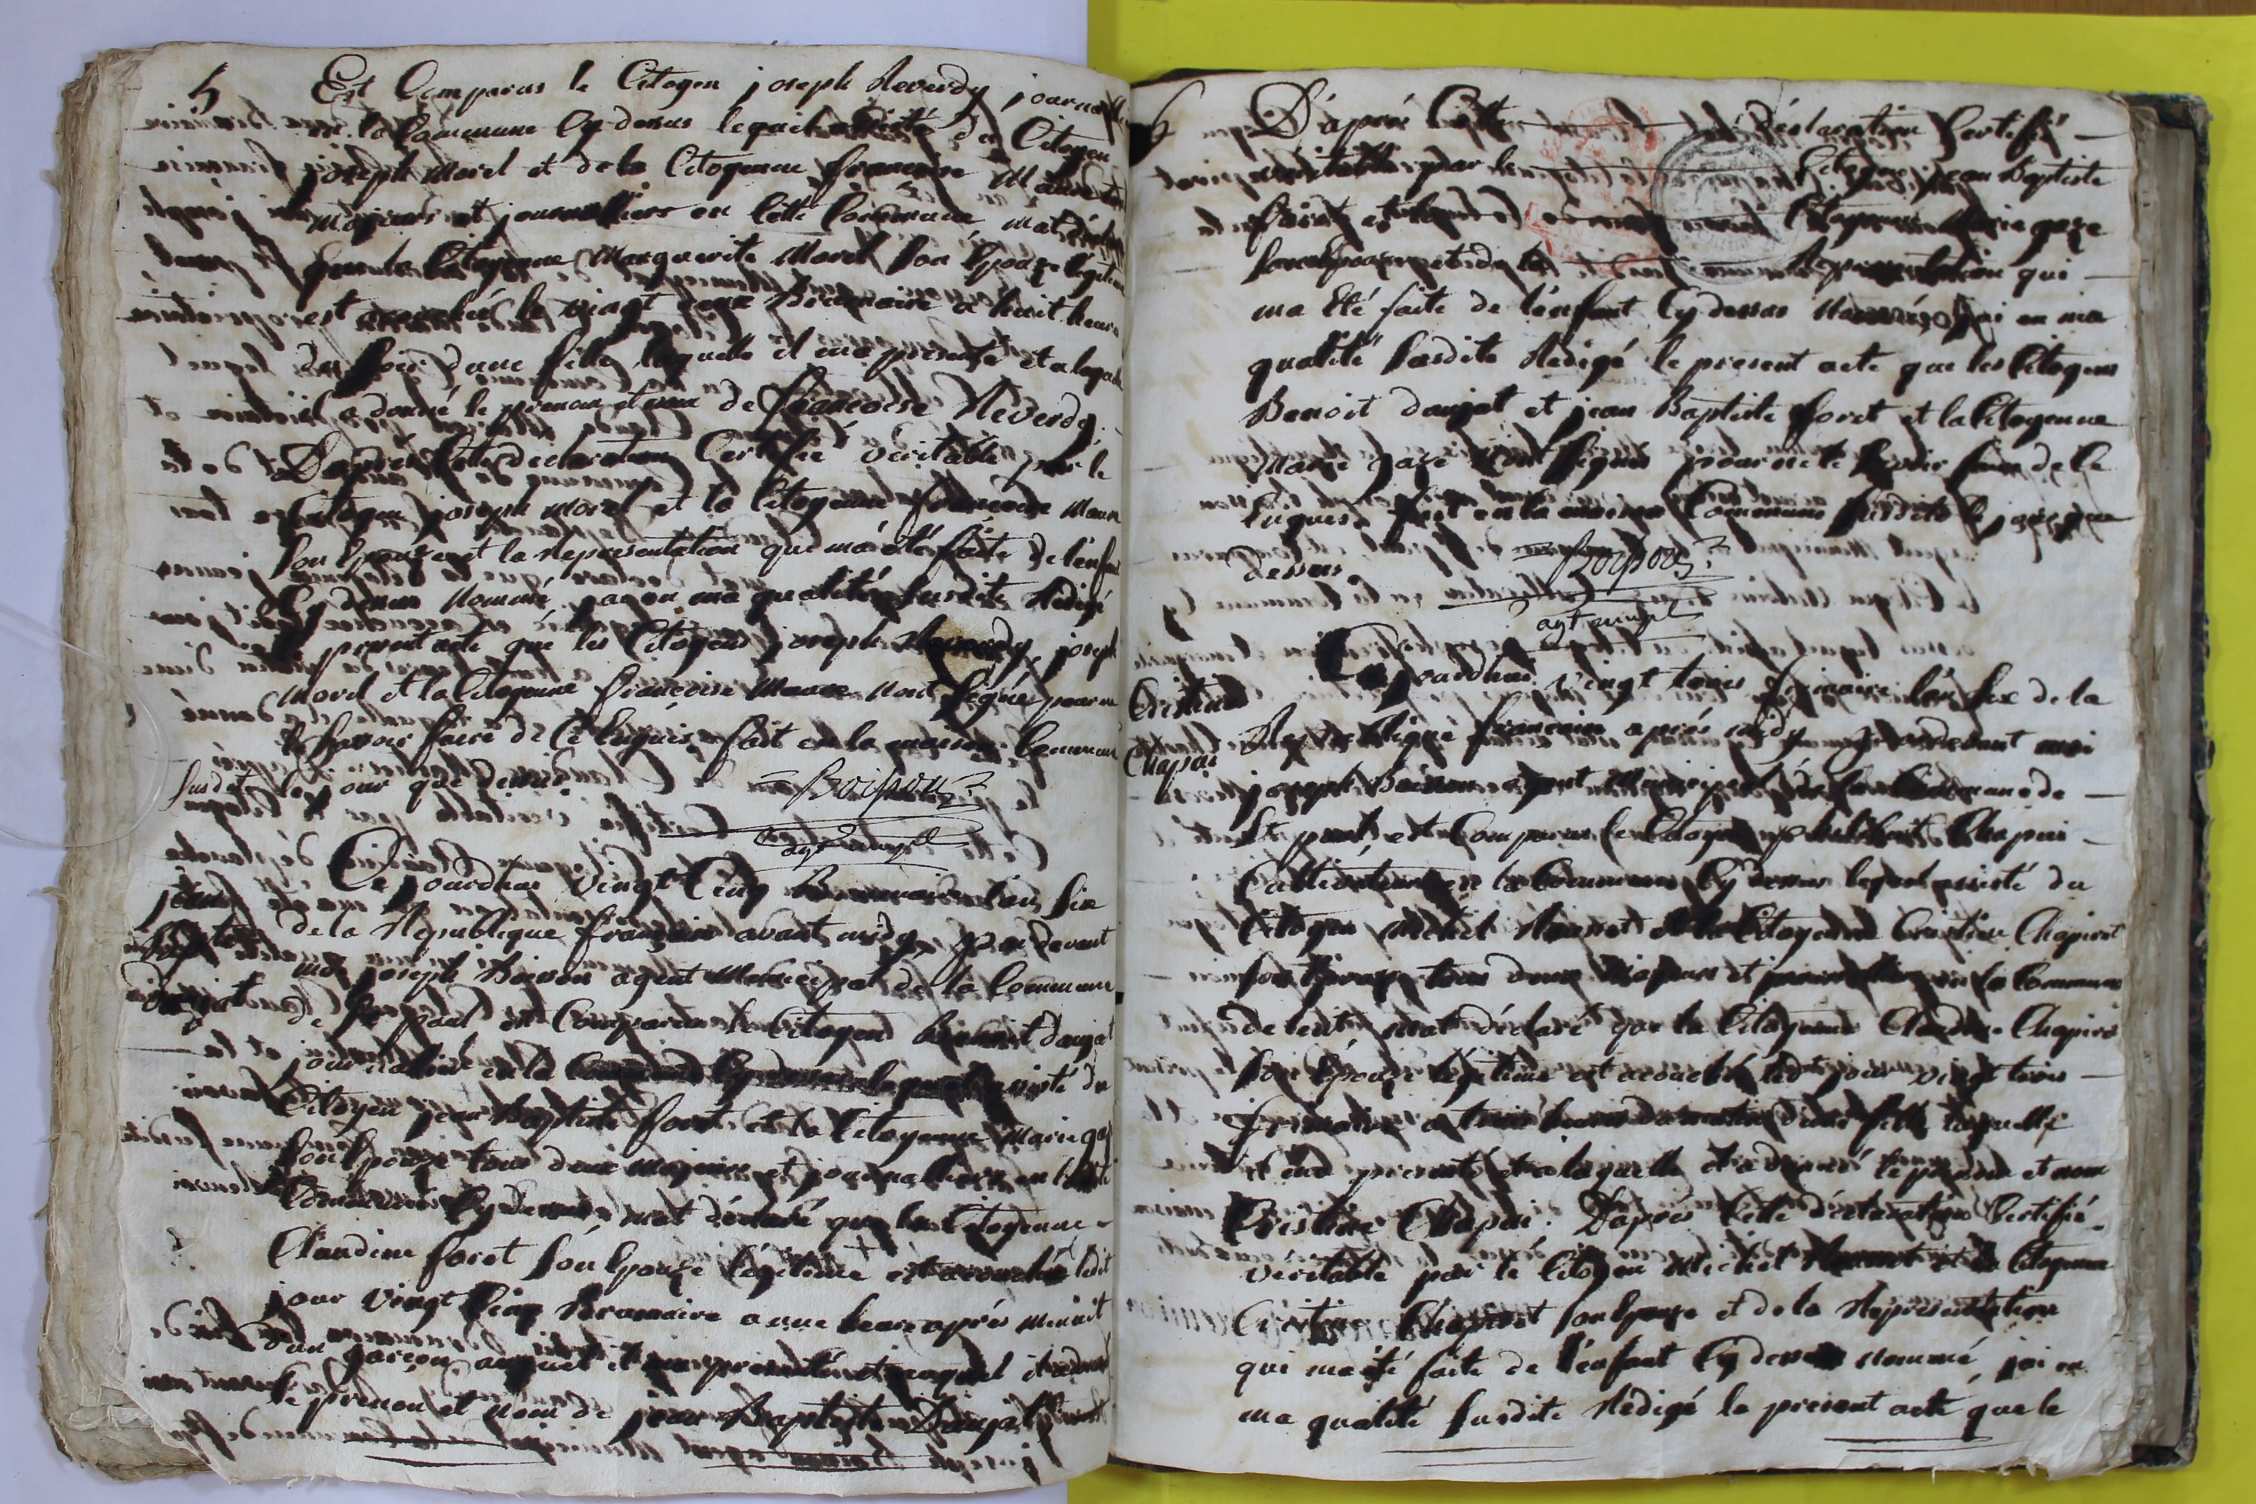 5
Est Comparus le Citoyen joseph Reverdy journallier
en la Commune Cy dessus lequel assisté du Citoyen
joseph Morel et de la Citoyenne françoise
Majeurs et journalliers en cette Commune mat déclaré
que la Citoyenne Marguerite Morel son Epouze légitime
est acouchée le vingt Brumaire a huit heure
du soir d'une fille laquelle il ma presenté et a laquelle
il a donné le prenom et nom de françoise Reverdy.
D'aprés Cette declaration Certifié veritable par le
Citoyen joseph Morel et la Citoyenne françoise
son Epouze et la Representation qui ma été faite de l'enfant
Cy dessus Nommé jai en ma qualité susdite Rédigé
le present acte que les Citoyens joseph Reverdy joseph
Morel et la Citoyenne françoise nont signé pour ne
le savoir faire de Ce Enquis fait en la maison Commune
susdit le jour que dessus.
Boisson
agt mupl
jean
Baptiste
daujat
Cejourdhui Vingt Cinq Brumaire l'an Six
de la Republique française avant midy, par devant
moi joseph Boisson agent Municipal de la Commune
de St paul est Comparu le Citoyen Benoit daujat
journalier en la Commune Cy dessus lequel assisté du
Citoyen jean Baptiste foret et la Citoyenne Marie gaze
son Epouze tous deux majeurs et journalliers en cette
Commune Cy dessus mat déclaré que la Citoyenne
Claudine foret son Epouze légitime est acouchée ledit
jour Vingt Cinq Brumaire a une heure aprés Minuit
d'un garçon auquel il ma presenté et auquel il a donné
le prenom et nom de jean Baptiste Daujat
6
D'aprés Cette Déclaration Certifié
veritable par le Citoyen jean Baptiste
foret et la Citoyenne Marie gaze
son Epouze et de la Representation qui
ma Eté faite de l'enfant Cy dessus Nommé, jai en ma
qualité susdite Rédigé le present acte que les Citoyens
Benoit daujat et jean Baptiste foret et la Citoyenne
Marie gaze nont signé pour ne le savoir faire de Ce
Enquis fait en la maison Commune susdite le jour que
dessus.
Boisson
agt mupl
Cristine
Chapui
Cejourdhui vingt trois frimaire l'an Six de la
Republique française aprés midy, par devant moi
joseph Boisson agent Municipal de la Commune de
St paul, est Comparu le Citoyen Chapui
Cultivateur en la Commune Cy dessus lequel assisté du
Citoyen Michel et la Citoyenne Cristine Chapirot
son Epouze tous deux Majeurs et journalliers en la Commune
de mat déclaré que la Citoyenne Claudine Chapirot
son Epouze légitime est acouchée ledit jour vingt trois
frimaire a trois heures du matin d'une fille laquelle
il ma presenté et a laquelle il a donné le prenom et nom
Cristine Chapui. D'aprés Cette déclaration Certifié
veritable par le Citoyen Michel et la Citoyenne
Cristine Chapirot son Epouze et de la Representation
qui ma été faite de l'enfant Cy dessus nommé, jai en
ma qualité susdite Rédigé le present acte que le